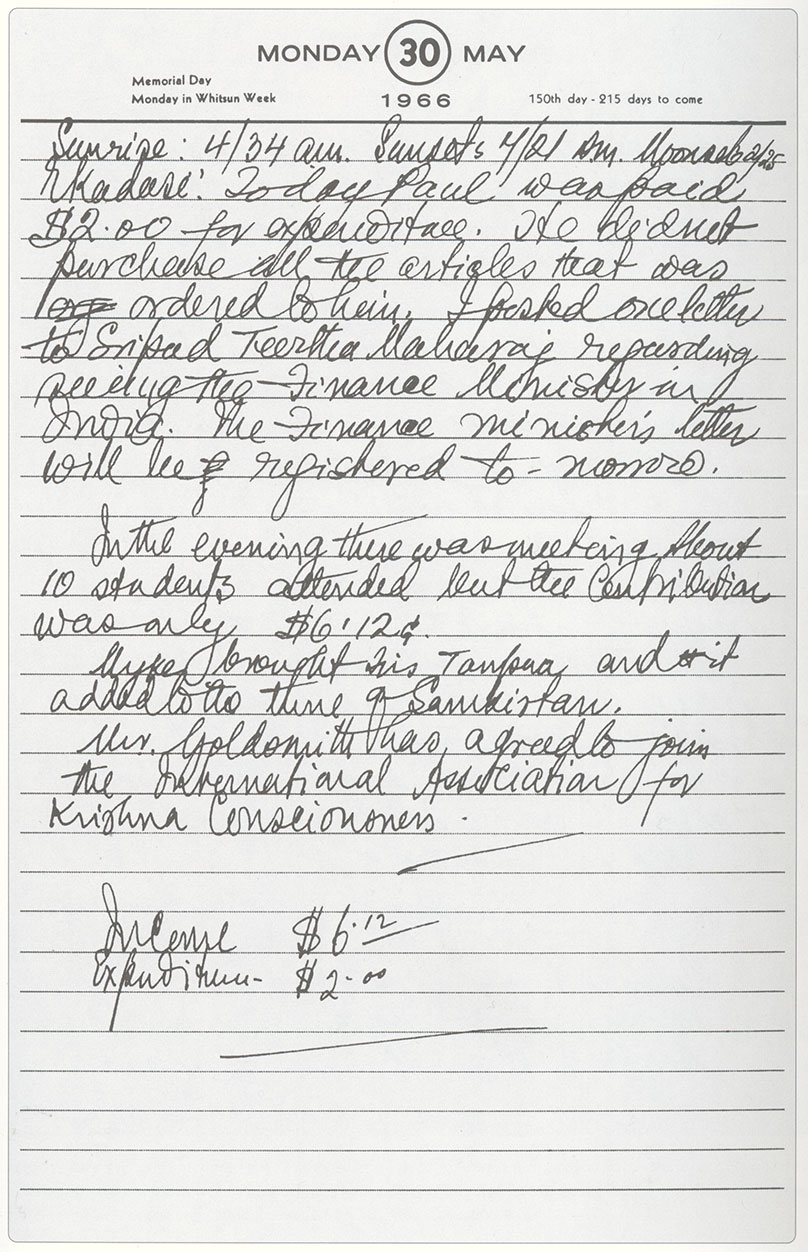 MONDAY 30 MAY
Memorial Day
Monday in Whitsun Week
1966
150th day - 215 days to come
Sunrise: 4/34 am. Sunset: 7/21 p.m. Moonset
Ekadasi: Today Paul was paid
$2.00 for expenditure. He did not
purchase all the articles that was
ordered to him. I posted one letter
to Sripad Teertha Maharaj regarding
seeing the Finance Minister in
India. The Finance minister's letter
will be registered to-morrow.
In the evening there was meeting about
10 students attended but the contribution
was only $6.12¢.
Myke brought his Tanpura and it
added to the tune of Samkirtan.
Mr. Goldsmith has agreed to join
the International Association for
Krishna Consciousness.
Income $6.12
Expenditure- $2.00